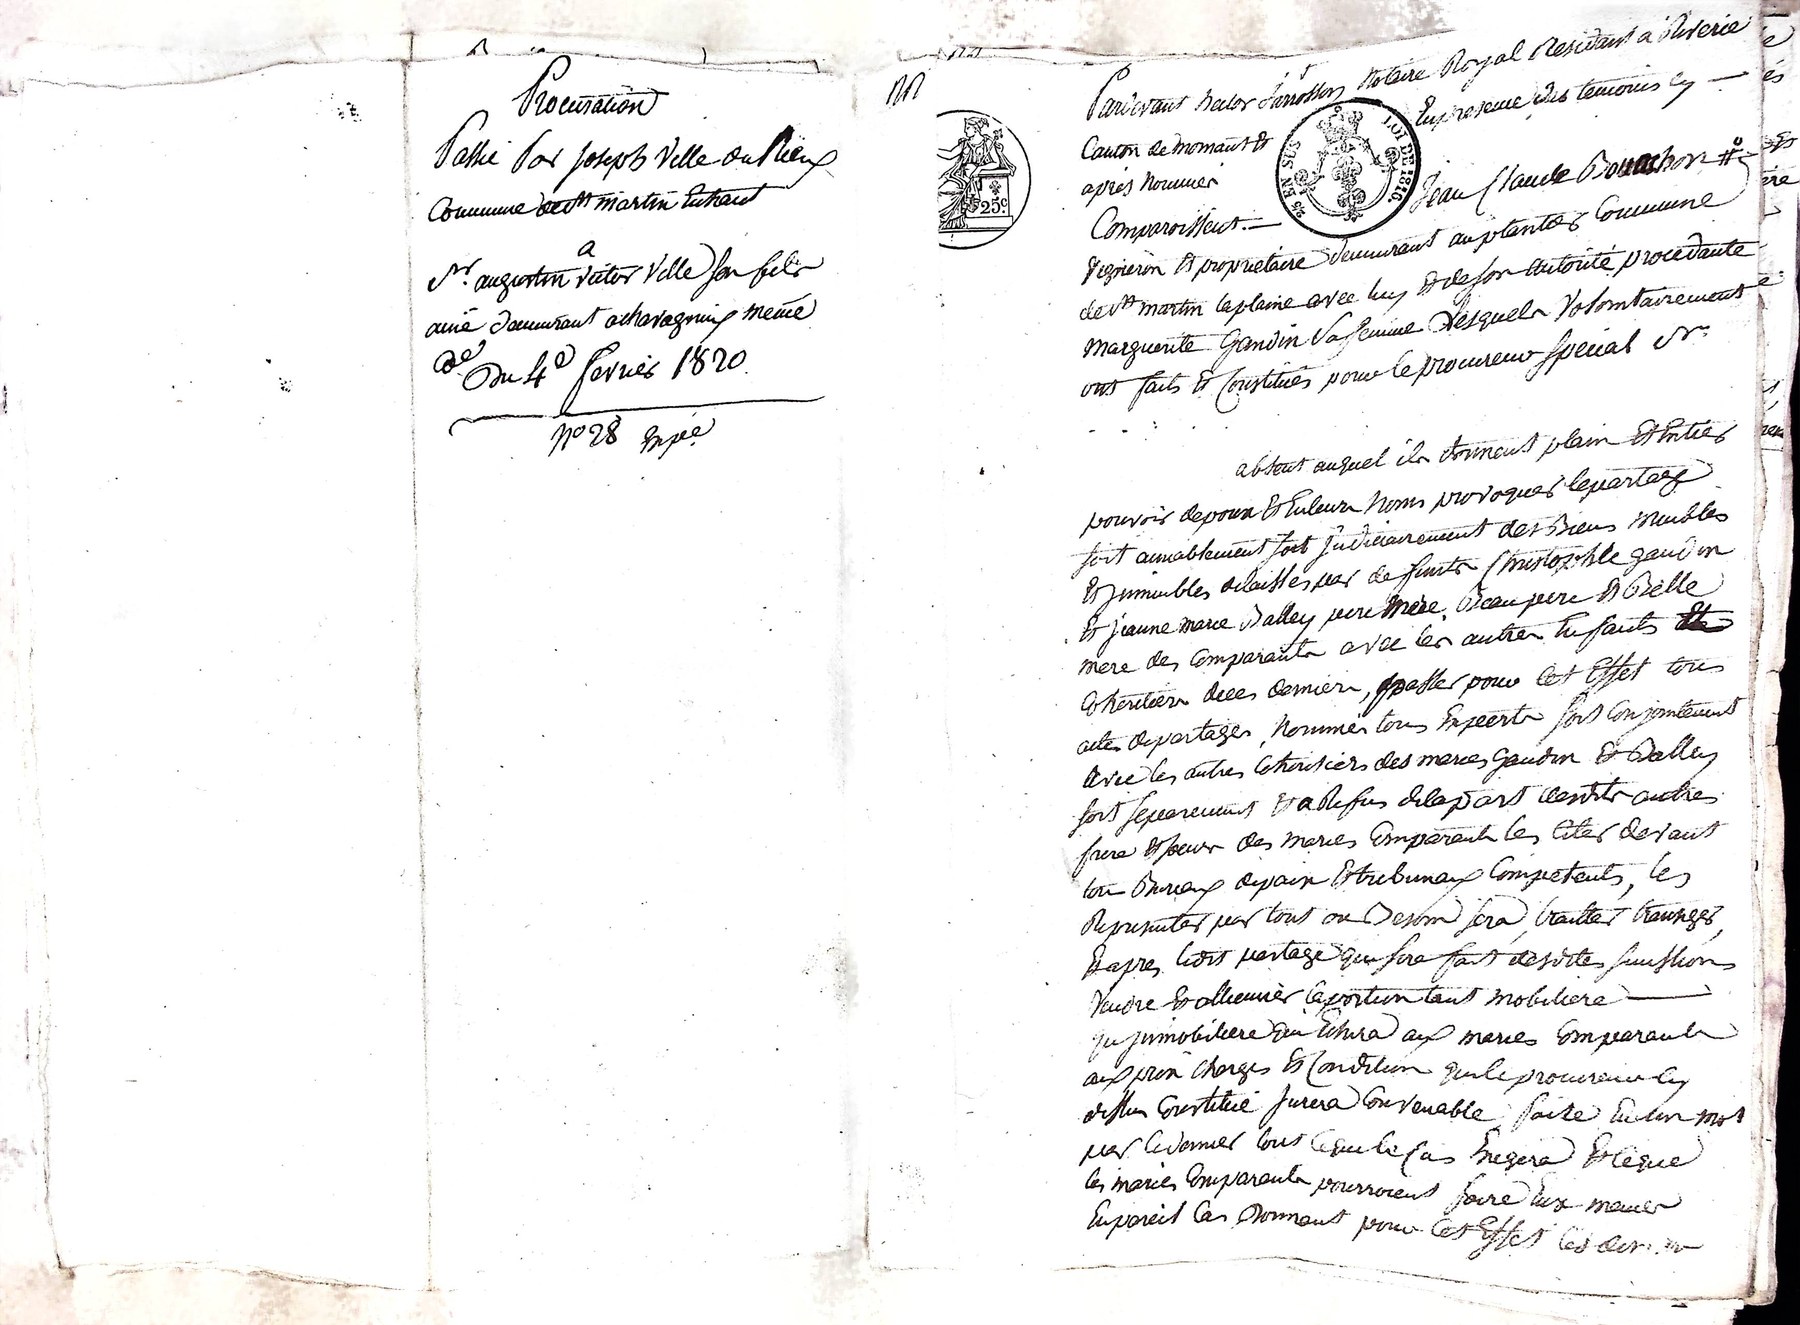 Procuration
Passée Par joseph Ville du Rieux
Commune de st martin Enhaut
a
Sr. augustin victor Ville son fils
ainé demeurant a chavagnieux meme
Ce.
Du 4e fevrier 1820.
No 28 Expée
Pardevant Notaire Royal Residant a Riverie
Canton de mornant Et En presence des temoins cy
après Nommés
LOI DE 1816
25 EN SUS
25.c
Comparoissent. Jean Claude Bouchon
vigneron Et propriétaire demeurant au plantier Commune
de st martin la plaine avec luy Et de son autorité procedante
marguerite Gaudin Sa femme Lesquels Volontairement
ont fait Et Constitués pour le procureur special Sr.
absent auquel ils donnent plain Et Entier
pouvoir de pour Et En leurs Noms provoquer le partage
soit aimablement soit judiciairement des Biens meubles
Et immeubles delaisses par defunts Christophle gaudin
Et jeanne marie Balley pere mere, Beau pere Et Belle
mere des Comparants avec les autres Enfants
Coheritiers de ces derniers, passer pour Cet Effet tous
actes de partages, Nommer tous Experts soit Conjointement
avec les autres Coheritiers des maries Gaudin Et Balley
soit séparement Et a Refus de la part desdits autres
frere Et soeurs des maries Comparants les citer devant
tous Bureaux de paix Et tribunaux Competents, les
Representer par tout ou Besoin sera, traiter, transiger,
Et apres ledit partage qui sera fait desdites successions
Vendre Et alliener la portion tant mobiliere
qu'immobiliere qui Echera aux maries Comparants
aux prix Charges Et Condition que le procureur cy
dessus Constitué jugera Convenable, faire En un mot
par le dernier tout ce que le Cas Exigera Et ceque
les maries Comparants pourroient faire Eux memes
En pareil Cas Donnant pour Cet Effet